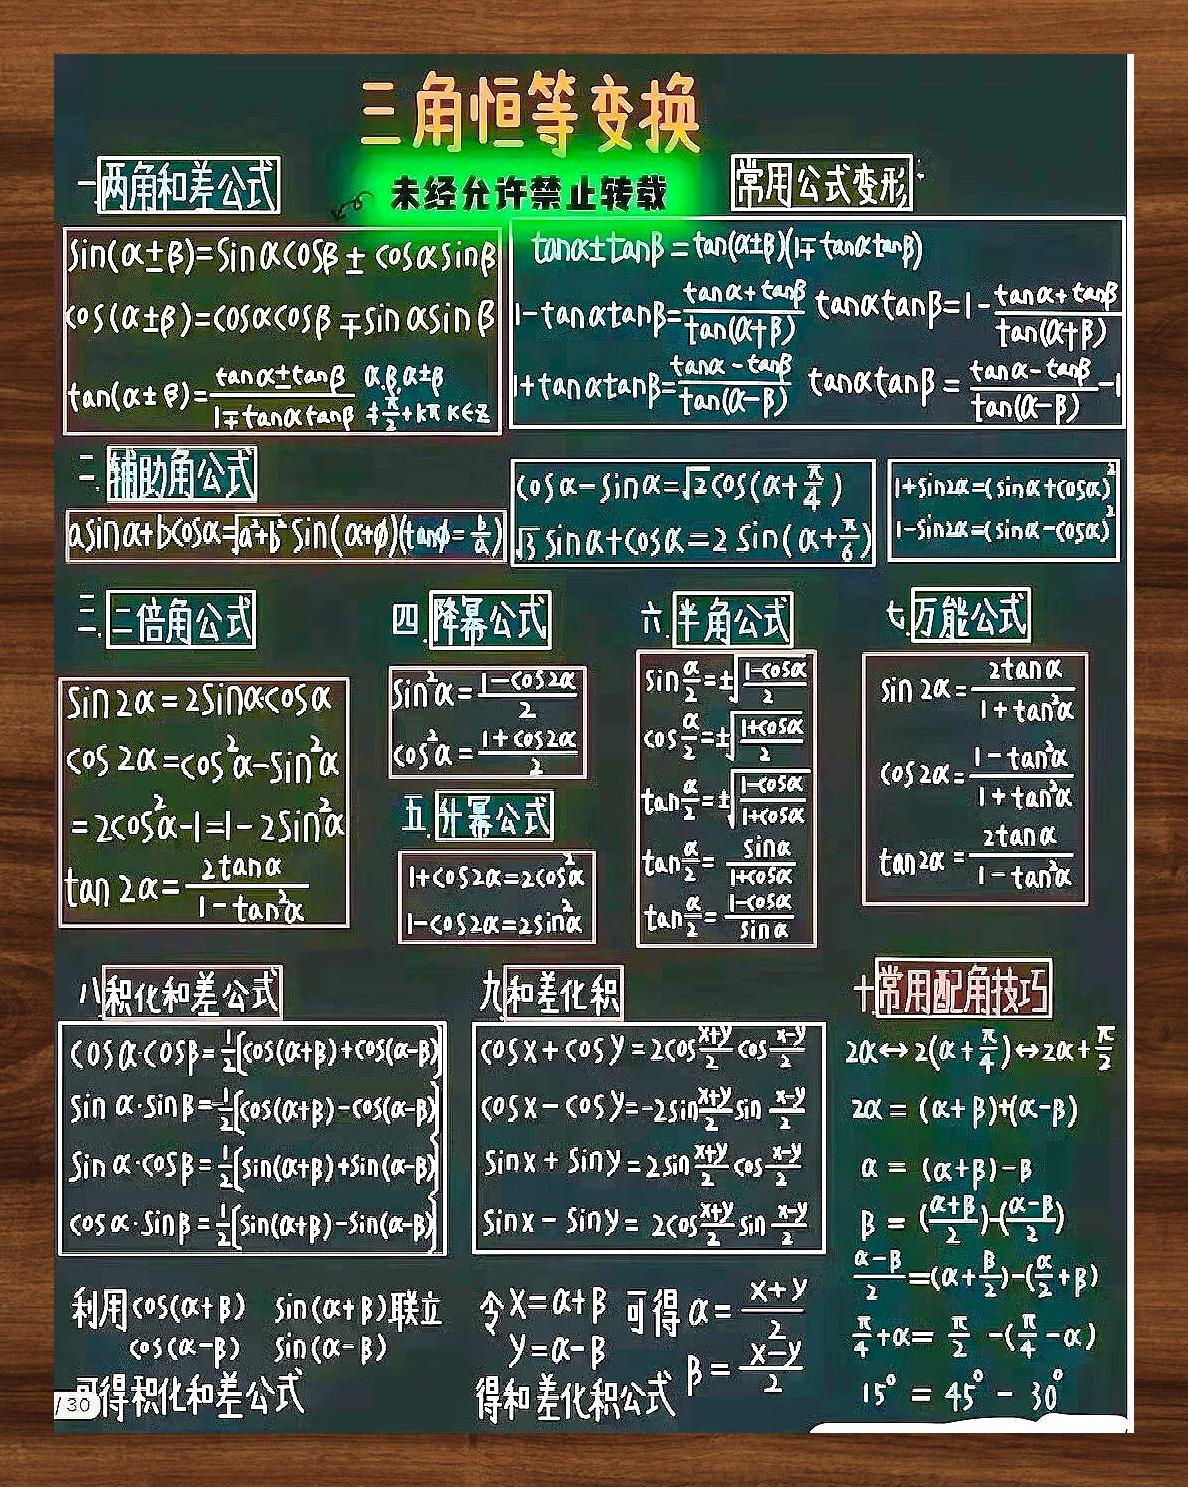 三角恒等变换
未经允许禁止转载
一.两角和差公式
sin(α±β)=sinαcosβ±cosαsinβ
cos(α±β)=cosαcosβ∓sinαsinβ
tan(α±β)=(tanα±tanβ)/(1∓tanαtanβ) α,β,α±β≠π/2+kπ k∈z
常用公式变形:
tanα±tanβ=tan(α±β)(1∓tanαtanβ)
1-tanαtanβ=(tanα+tanβ)/tan(α+β) tanαtanβ=1-(tanα+tanβ)/tan(α+β)
1+tanαtanβ=(tanα-tanβ)/tan(α-β) tanαtanβ=(tanα-tanβ)/tan(α-β)-1
二.辅助角公式
asinα+bcosα=√(a²+b²)sin(α+φ)(tanφ=b/a)
cosα-sinα=√2cos(α+π/4)
√3sinα+cosα=2sin(α+π/6)
1+sin2α=(sinα+cosα)²
1-sin2α=(sinα-cosα)²
三.二倍角公式
sin2α=2sinαcosα
cos2α=cos²α-sin²α
=2cos²α-1=1-2sin²α
tan2α=2tanα/(1-tan²α)
四.降幂公式
sin²α=(1-cos2α)/2
cos²α=(1+cos2α)/2
五.升幂公式
1+cos2α=2cos²α
1-cos2α=2sin²α
六.半角公式
sin α/2=±√((1-cosα)/2)
cos α/2=±√((1+cosα)/2)
tan α/2=±√((1-cosα)/(1+cosα))
tan α/2=sinα/(1+cosα)
tan α/2=(1-cosα)/sinα
七.万能公式
sin2α=2tanα/(1+tan²α)
cos2α=(1-tan²α)/(1+tan²α)
tan2α=2tanα/(1-tan²α)
八积化和差公式
cosα·cosβ=1/2[cos(α+β)+cos(α-β)]
sinα·sinβ=-1/2[cos(α+β)-cos(α-β)]
sinα·cosβ=1/2[sin(α+β)+sin(α-β)]
cosα·sinβ=1/2[sin(α+β)-sin(α-β)]
利用cos(α+β) sin(α+β)联立
cos(α-β) sin(α-β)
可得积化和差公式
九和差化积
cosx+cosy=2cos (x+y)/2 cos (x-y)/2
cosx-cosy=-2sin (x+y)/2 sin (x-y)/2
sinx+siny=2sin (x+y)/2 cos (x-y)/2
sinx-siny=2cos (x+y)/2 sin (x-y)/2
令x=α+β 可得α=(x+y)/2
y=α-β β=(x-y)/2
得和差化积公式
十常用配角技巧
2α↔2(α+π/4)↔2α+π/2
2α=(α+β)+(α-β)
α=(α+β)-β
β=((α+β)/2)-((α-β)/2)
(α-β)/2=(α+β/2)-(α/2+β)
π/4+α=π/2-(π/4-α)
15°=45°-30°
/30